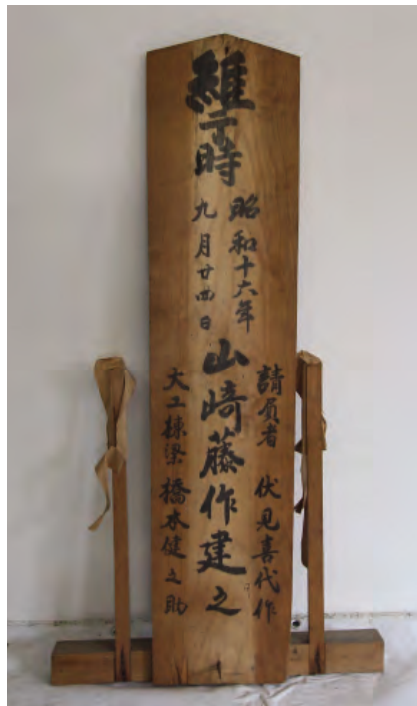 維于時
昭和十六年
九月廿四日
請負者 伏見喜代作
山崎藤作建之
大工棟梁 橋本健之助